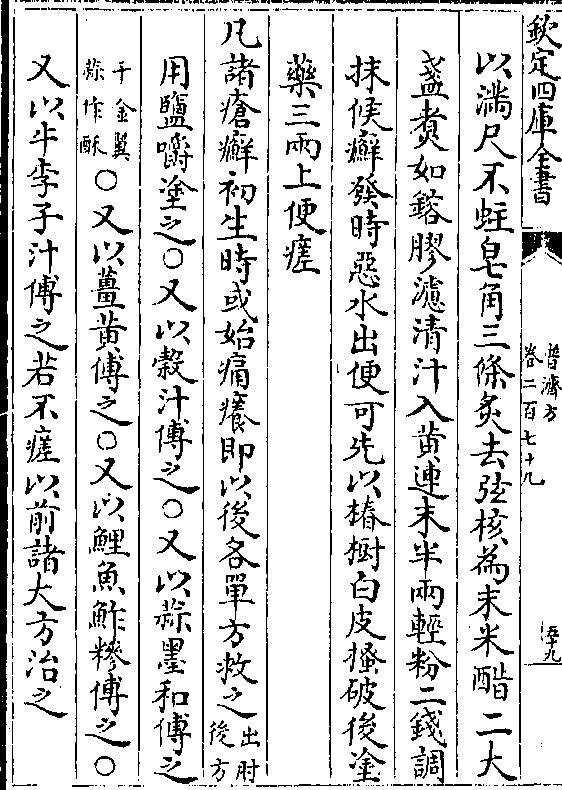 欽定四庫全書
普濟方
卷二百七十九
五十九
以滿尺不蛀皂角三條炙去弦核為末米醋二大
盞煑如餳膠濾清汁入黄連末半兩輕粉二錢調
抹候癬發時惡水出便可先以椿樹白皮搔破後塗
藥三兩上便瘥
凡諸瘡癬初生時或始痛癢即以後各單方救之出肘後方
用鹽嚼塗之○又以穀汁傅之○又以蒜墨和傅之
千金翼蒜作酥○又以薑黄傅之○又以鯉魚鮓糝傅之○
又以牛李子汁傅之若不瘥以前諸大方治之